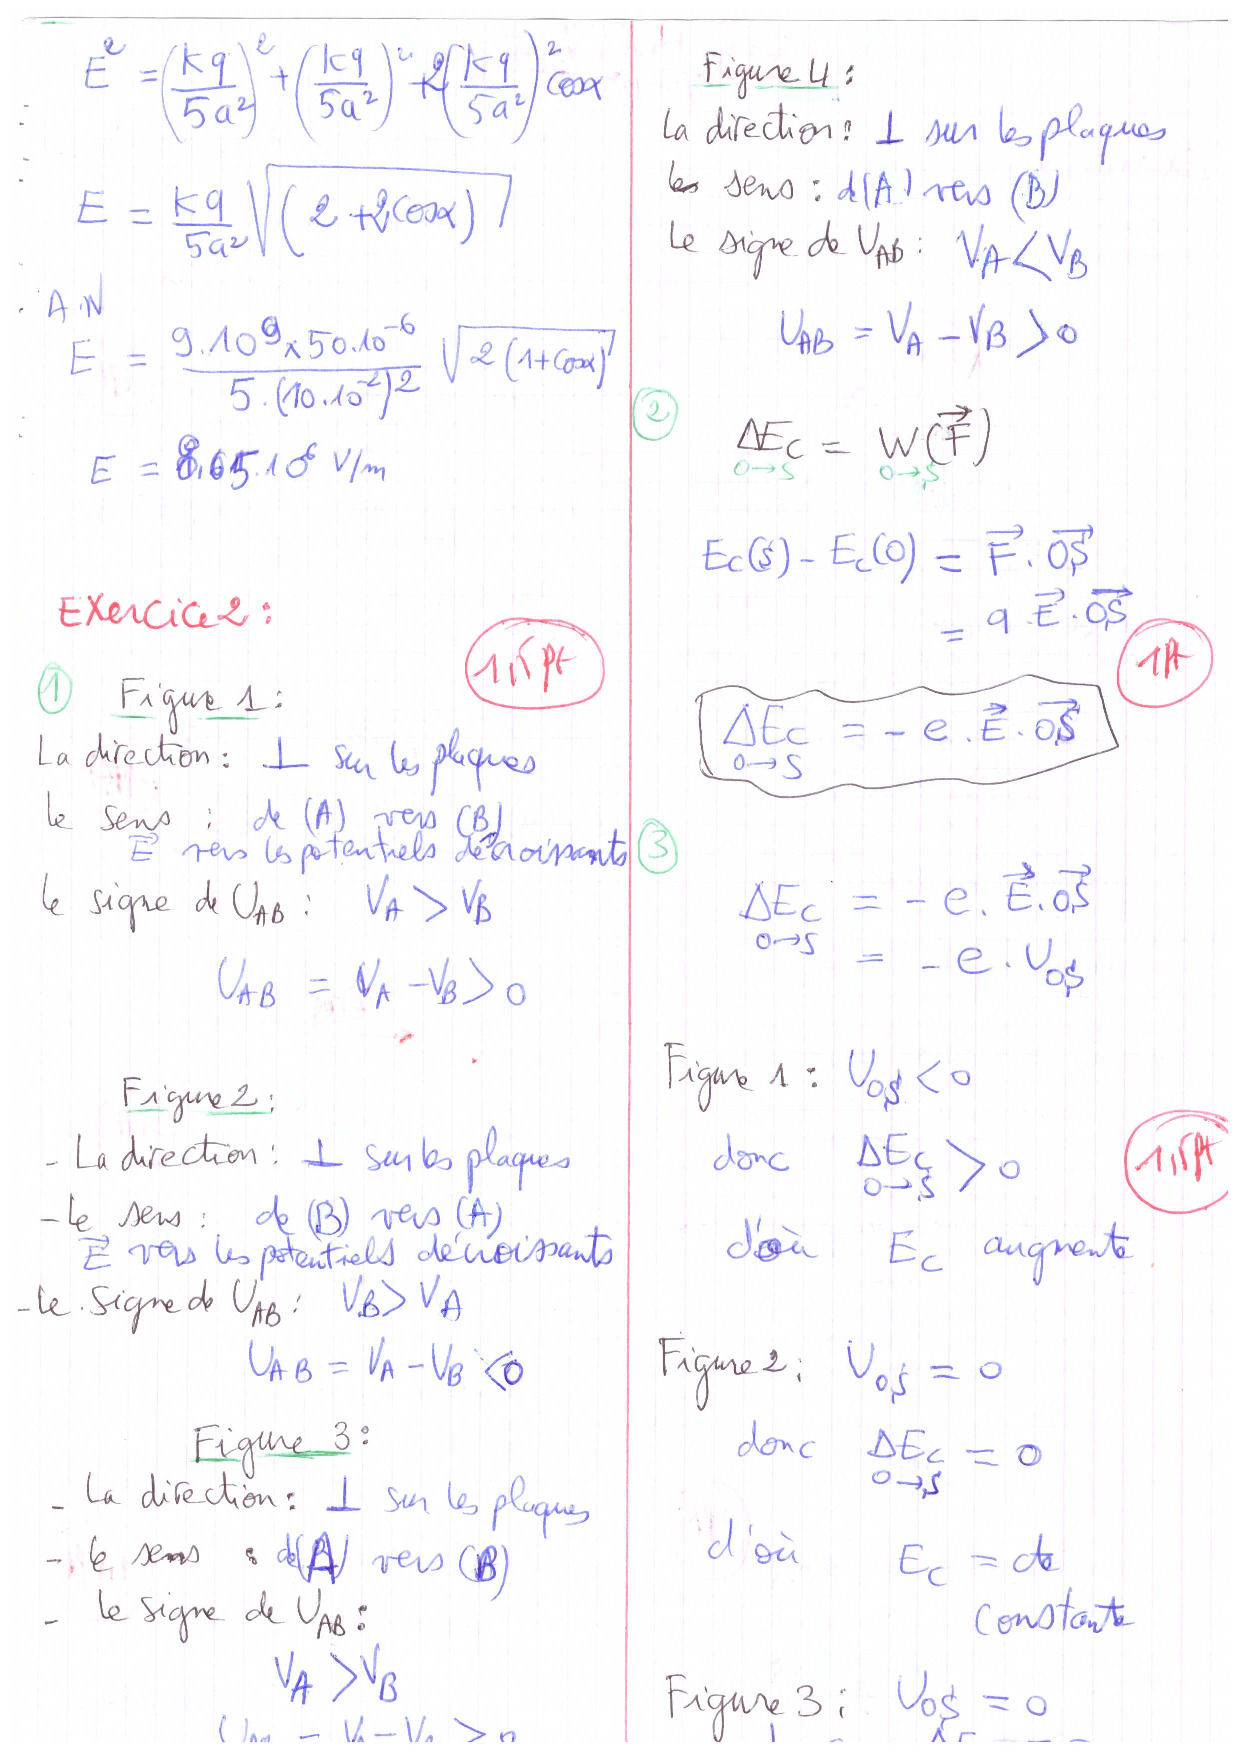 E² = (kq/5a²)² + (kq/5a²)² + 2(kq/5a²)² cosα
E = kq/5a² √(2 + 2cosα)
A.N
E = 9.10⁹ × 50.10⁻⁶ / 5.(10.10⁻²)² √2(1+cosα)
E = 8,65.10⁶ V/m
Exercice 2 :
1,5 pt
1 Figure 1 :
La direction : ⊥ sur les plaques
le sens : de (A) vers (B)
E⃗ vers les potentiels décroissants
le signe de U_AB : V_A > V_B
U_AB = V_A - V_B > 0
Figure 2 :
- La direction : ⊥ sur les plaques
- le sens : de (B) vers (A)
E⃗ vers les potentiels décroissants
- le signe de U_AB : V_B > V_A
U_AB = V_A - V_B < 0
Figure 3 :
- La direction : ⊥ sur les plaques
- le sens : de (A) vers (B)
- le signe de U_AB :
V_A > V_B
U_AB = V_A - V_B > 0
Figure 4 :
La direction : ⊥ sur les plaques
le sens : d(A) vers (B)
le signe de U_AB : V_A < V_B
U_AB = V_A - V_B > 0
2
ΔEc = W(F⃗)
O→S O→S
Ec(S) - Ec(O) = F⃗ . OS⃗
= q E⃗ . OS⃗
1 pt
ΔEc = - e . E⃗ . OS⃗
O→S
3
ΔEc = - e . E⃗ . OS⃗
O→S
= - e . U_OS
Figure 1 : U_OS < 0
donc ΔEc > 0
O→S
1,5 pt
d'où Ec augmente
Figure 2 : U_OS = 0
donc ΔEc = 0
O→S
d'où Ec = cte
constante
Figure 3 : U_OS = 0